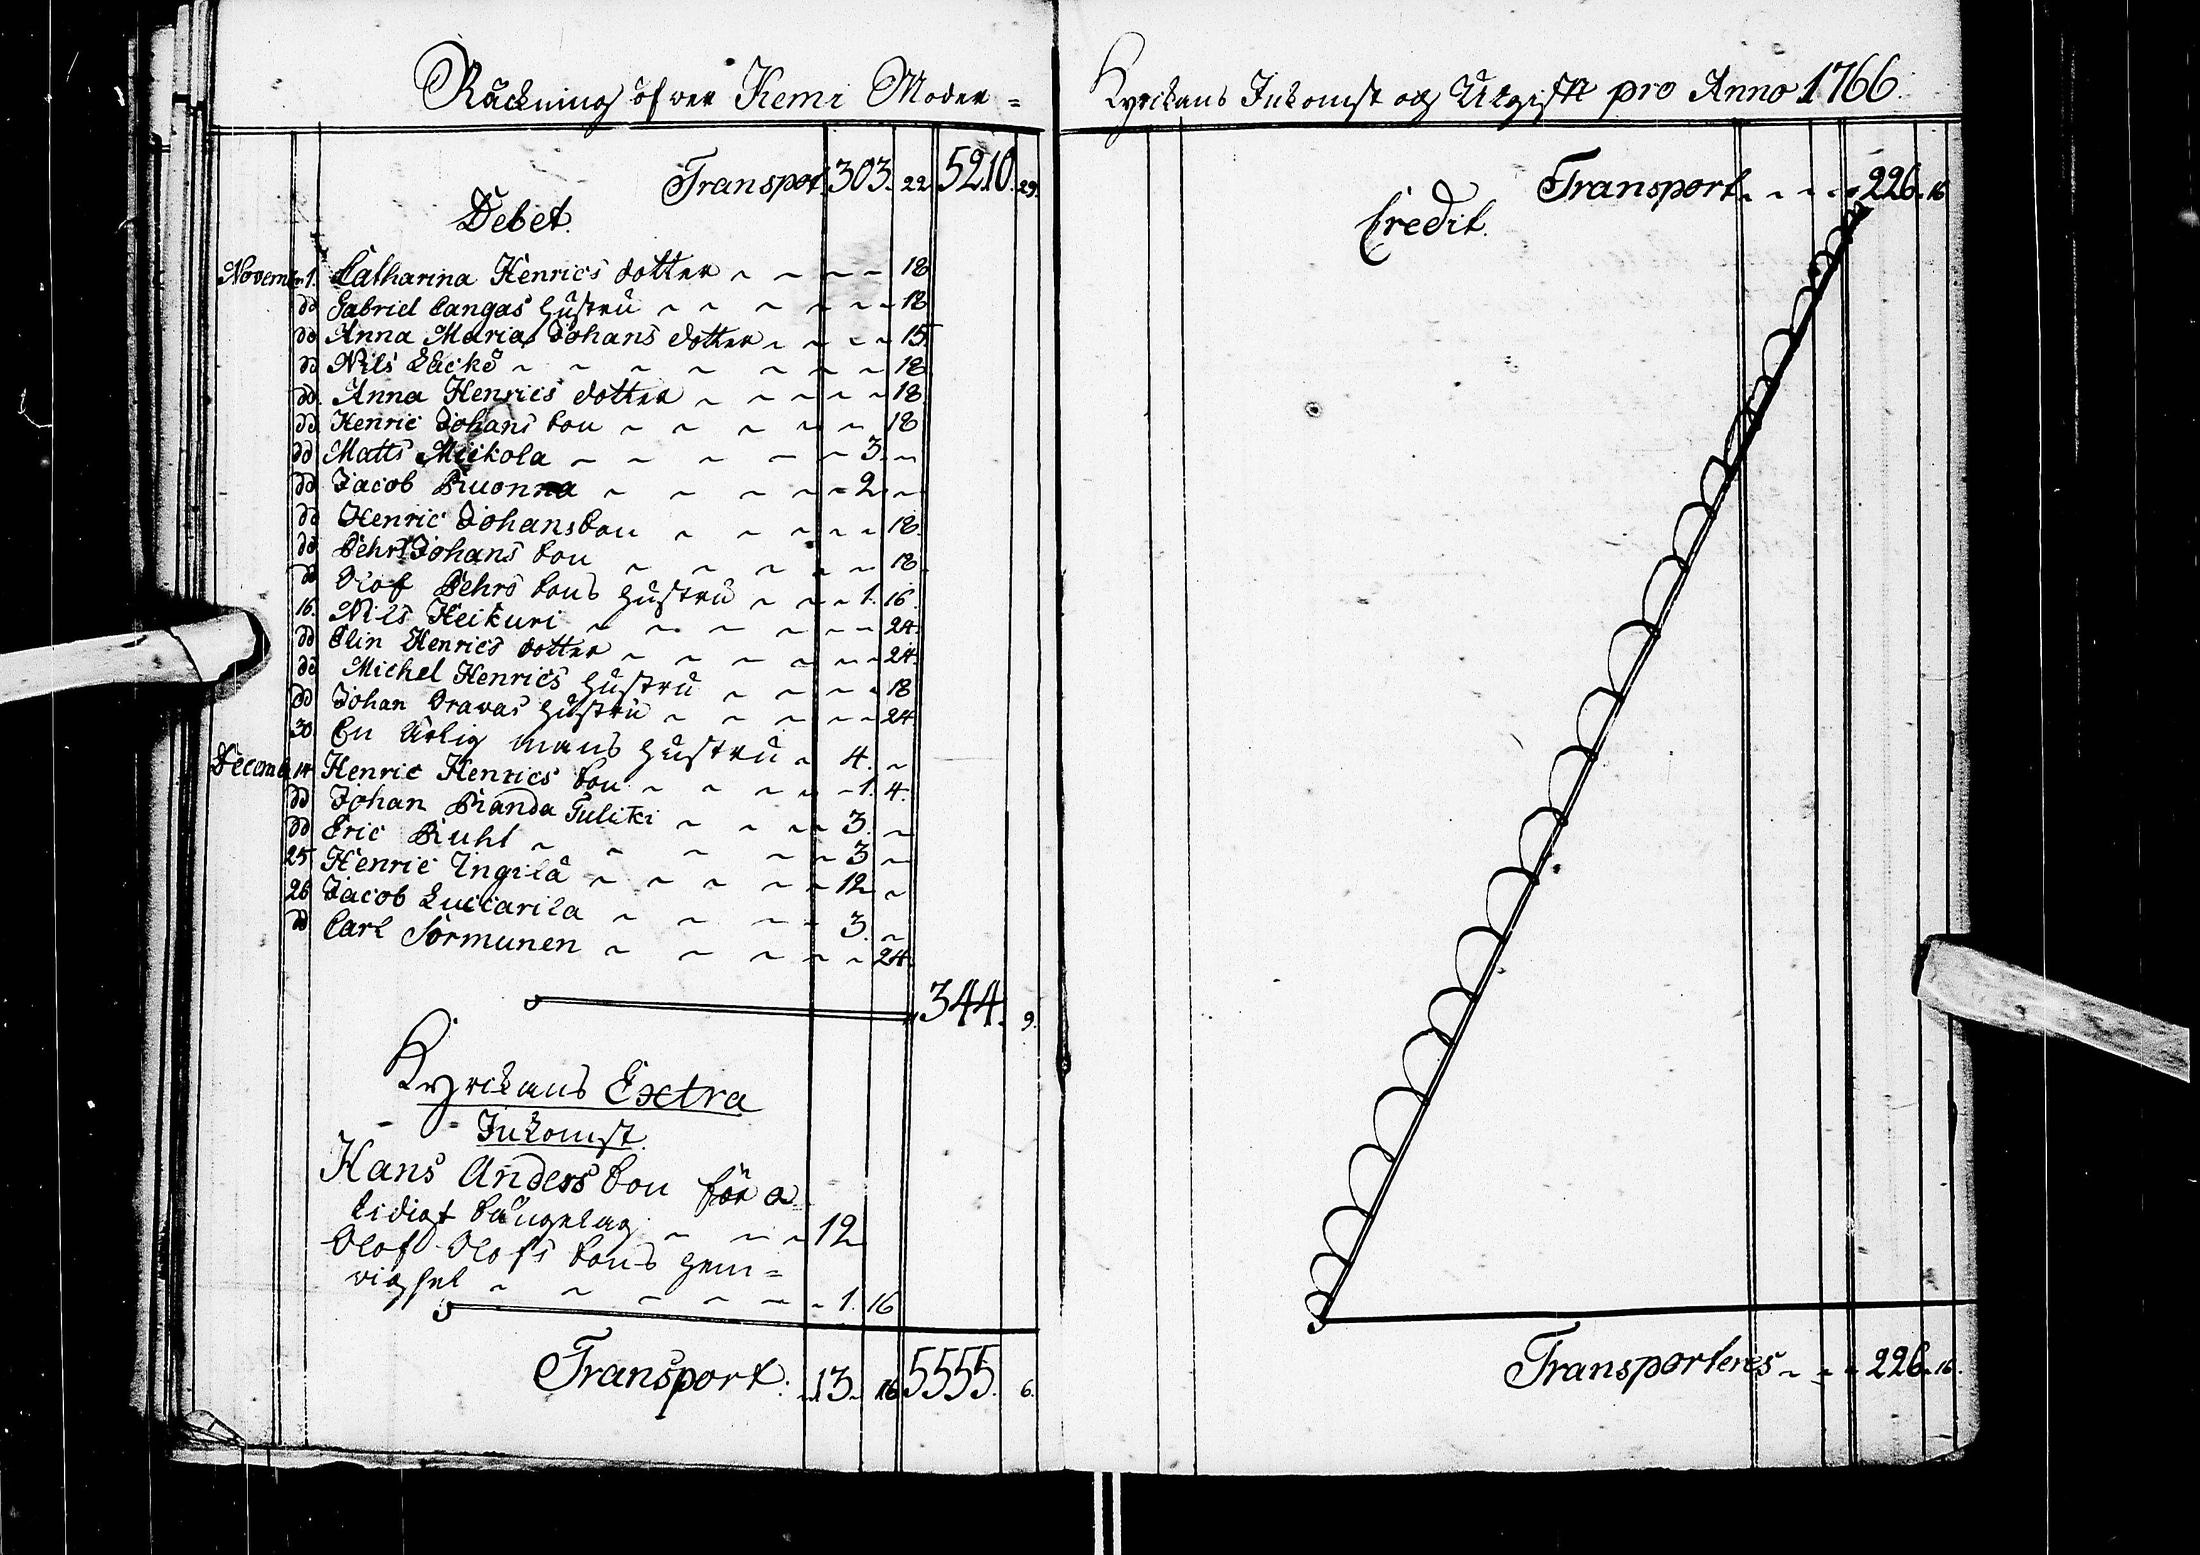 Räckning öfver Kemi Moder=
Transport 303. 22 5210. 29.
Debet.
Novemb: 1. Catharina Henrics dotter 18
dd Gabriel Cangas hustru 18
dd Anna Maria Johans dotter 15
dd Nils Läckö 18
dd Anna Henrics dotter 18
dd Henric Johans son 18
dd Matts Miekola 3
dd Jacob Ruonna 2
dd Henric Johansson 18
dd Pehr Johans son 18
dd Olof Pehrs sons hustru 1. 16
16. Nils Heikuri 24
dd Elin Henrics dotter 24
dd Michel Henrics hustru 18
dd Johan Oravas hustru 24
30 En ärlig mans hustru 4
Decemb 14 Henric Henrics son 1. 4.
dd Johan Randa Tulikki 3
dd Eric Ruht 3
25 Henric Ingilä 12
26 Jacob Luccarila 3
dd Carl Sormunen 24
344. 9.
Kyrckans Extra
Inkomst.
Hans Anders son för o
lidigt sängelag 12
Olof Olofs sons hem=
vigsel 1. 16
Transport. 13 16 5555. 6.
Kyrckans Inkomst och Utgift pro Anno 1766.
Transport 226. 16
Credit.
Transporteres 226. 16.